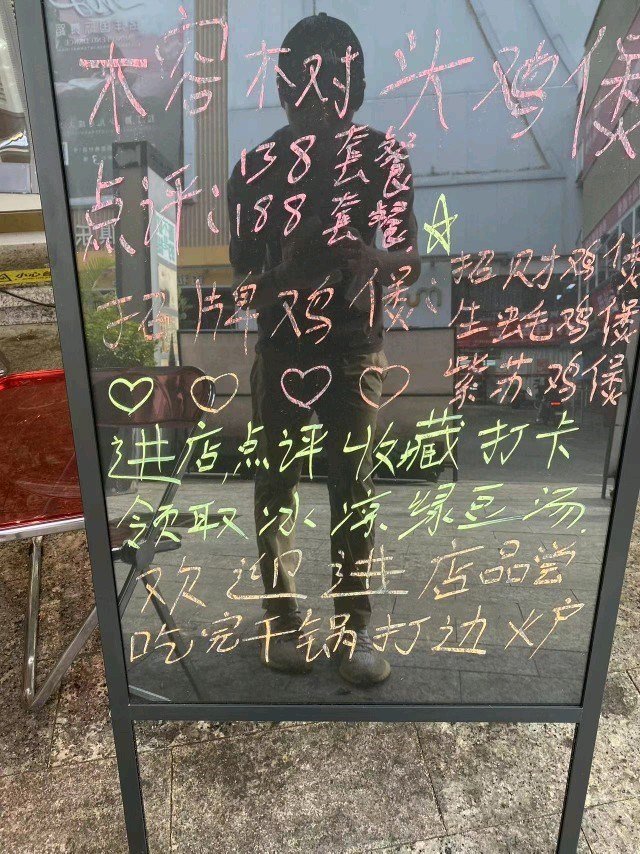 榕树头鸡煲
点评:138套餐
188套餐
招牌鸡煲:招财鸡煲
生蚝鸡煲
紫苏鸡煲
进店点评收藏打卡
领取冰凉绿豆汤
欢迎进店品尝
吃完干锅打边炉
小心